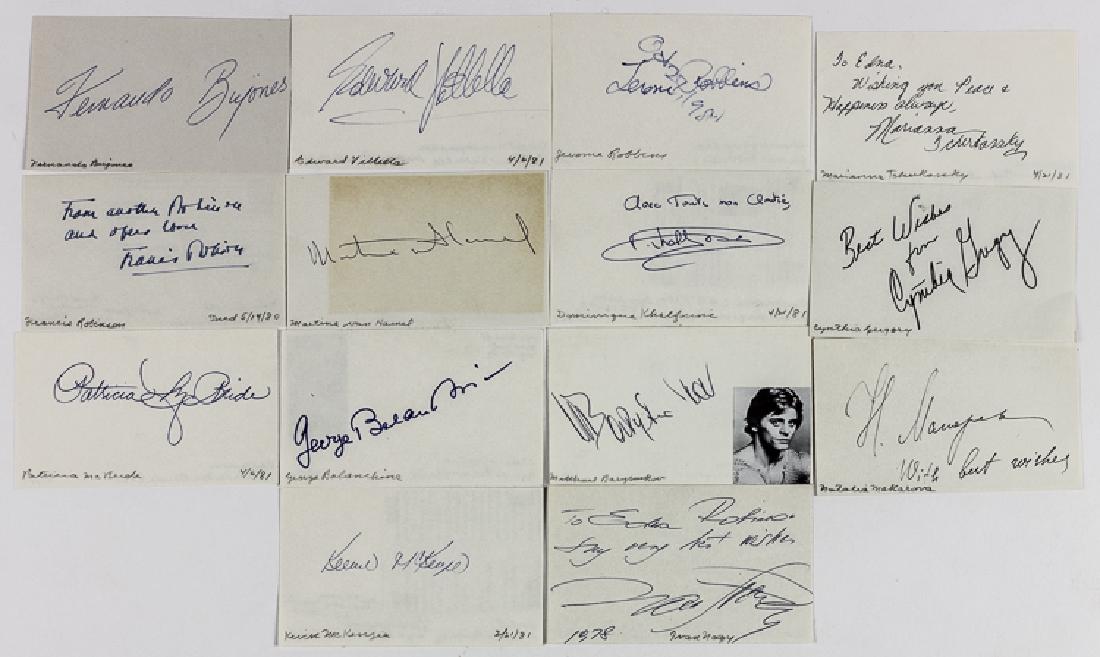 Fernando Bujones
Fernando Bujones
Edward Villella
Edward Villella 4/2/81
Oct 20 1981
Jerome Robbins
Jerome Robbins
To Edna,
Wishing you Peace &
Happiness always,
Marianna
Tcherkassky
Marianna Tcherkassky 4/21/81
From another Robinson
and opera lover
Francis Robinson
Francis Robinson Died 5/19/80
Martine van Hamel
Martine van Hamel
Khalfouni
Dominique Khalfouni 4/21/81
Best Wishes
from
Cynthia Gregory
Cynthia Gregory
Patricia McBride
Patricia McBride 4/2/81
George Balanchine
George Balanchine
M Baryshnikov
Mikhail Baryshnikov
N. Makarova
With best wishes
Natalia Makarova
Kevin McKenzie
Kevin McKenzie 2/21/81
To Edna Robinson
very best wishes
Ivan Nagy
1978 Ivan Nagy